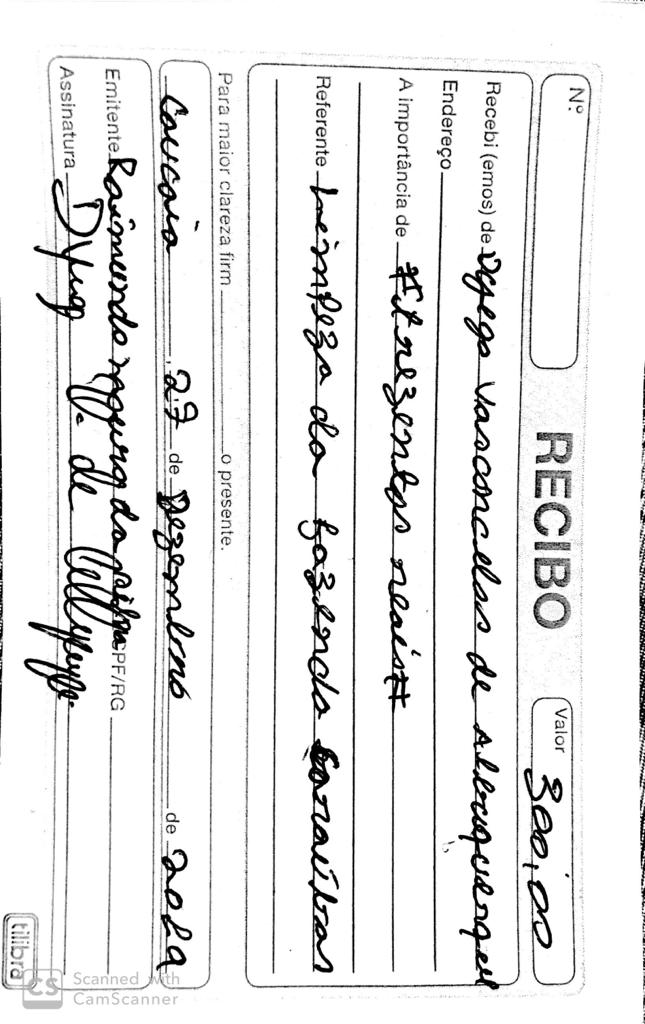 Nº RECIBO Valor 300,00
Recebi (emos) de Vasconcelos de Albuquerque
Endereço
A importância de #trezentos reais#
Referente Limpeza da fazenda
Para maior clareza firm o presente.
Caucaia, 27 de Dezembro de 2019
Emitente Raimundo da CPF/RG
Assinatura de
tilibra
CS Scanned with
CamScanner